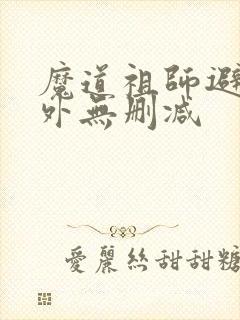 魔道祖師避
外無删减
愛麗絲甜甜糖